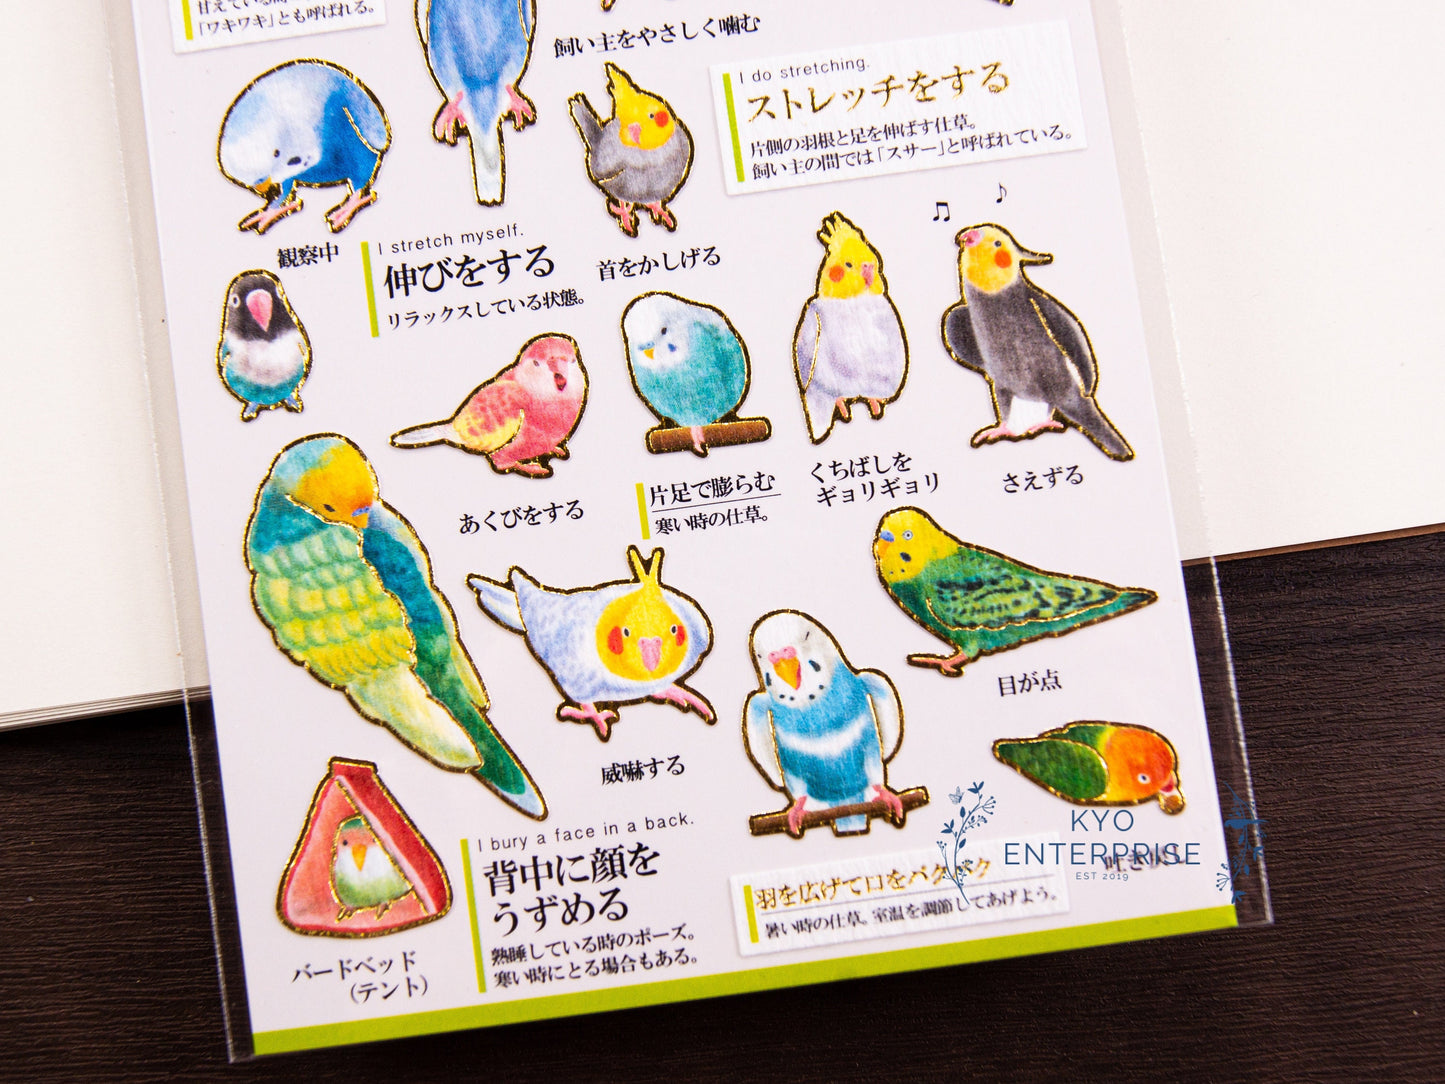 「ワキワキ」とも呼ばれる。
飼い主をやさしく噛む
I do stretching.
ストレッチをする
片側の羽根と足を伸ばす仕草。
飼い主の間では「スサー」と呼ばれている。
観察中
I stretch myself.
伸びをする
リラックスしている状態。
首をかしげる
♫ ♪
あくびをする
片足で膨らむ
寒い時の仕草。
くちばしを
ギョリギョリ
さえずる
威嚇する
目が点
I bury a face in a back.
背中に顔を
うずめる
熟睡している時のポーズ。
寒い時にとる場合もある。
バードベッド
(テント)
羽を広げて口をパクパク
暑い時の仕草。室温を調節してあげよう。
KYO
ENTERPRISE
EST 2019